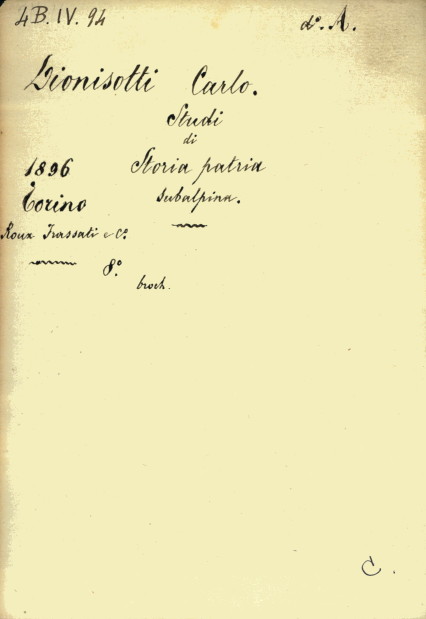 4B. IV. 94
d°. A.
Dionisotti Carlo.
Studi
di
1896 Storia patria
Torino Subalpina.
Roux Frassati e C°.
8°
broch.
C.